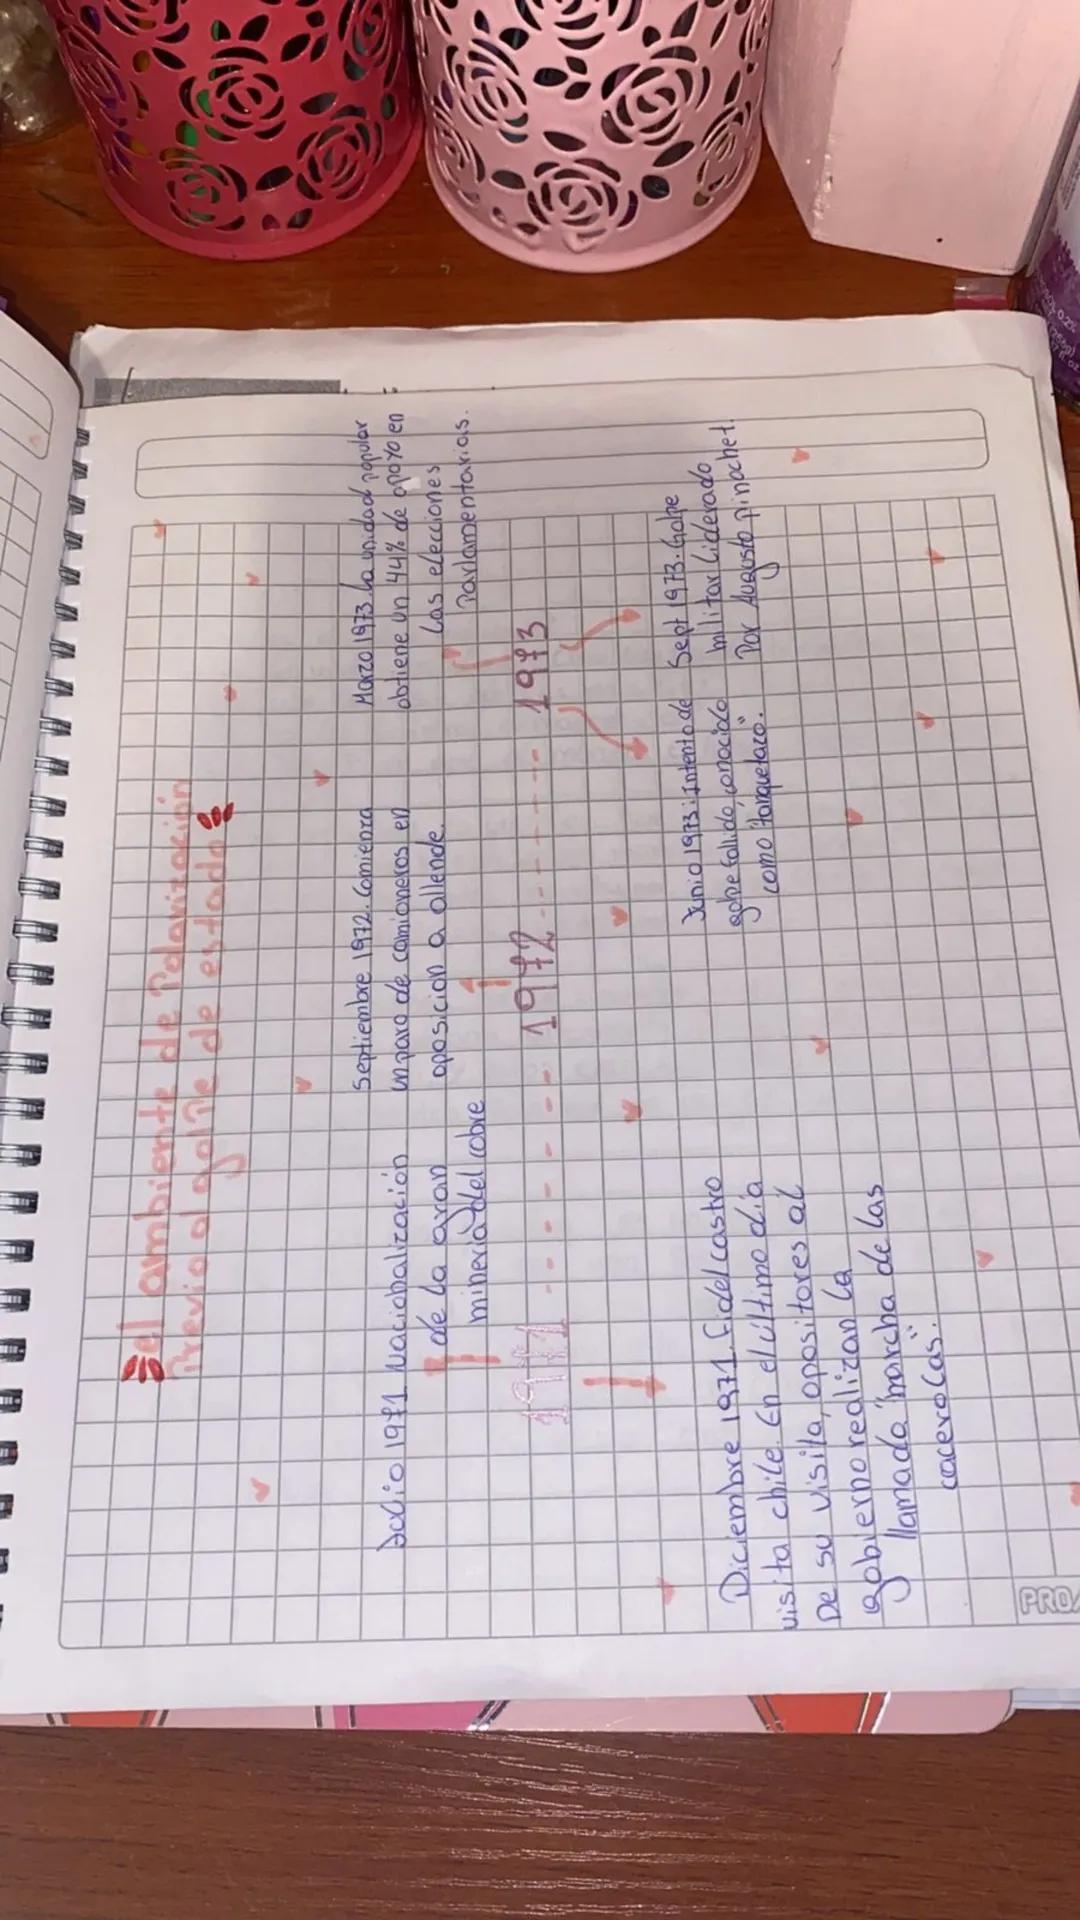 el ambiente de Polarización
Previo al golpe de estado
Julio 1971 Nacionalización
de la gran
minería del cobre
Septiembre 1972. Comienza
un paro de camioneros en
oposicion a allende.
Marzo 1973. La unidad popular
obtiene un 44% de apoyo en
las elecciones
Parlamentarias.
1971 1972 1973
Diciembre 1971. Fidel castro
visita chile. En el último día
De su visita, opositores al
gobierno realizan la
llamada "marcha de las
cacerolas".
Junio 1973: Intento de
golpe fallido, conocido
como "tanquetazo".
Sept 1973. Golpe
militar liderado
Por Augusto pinochet.